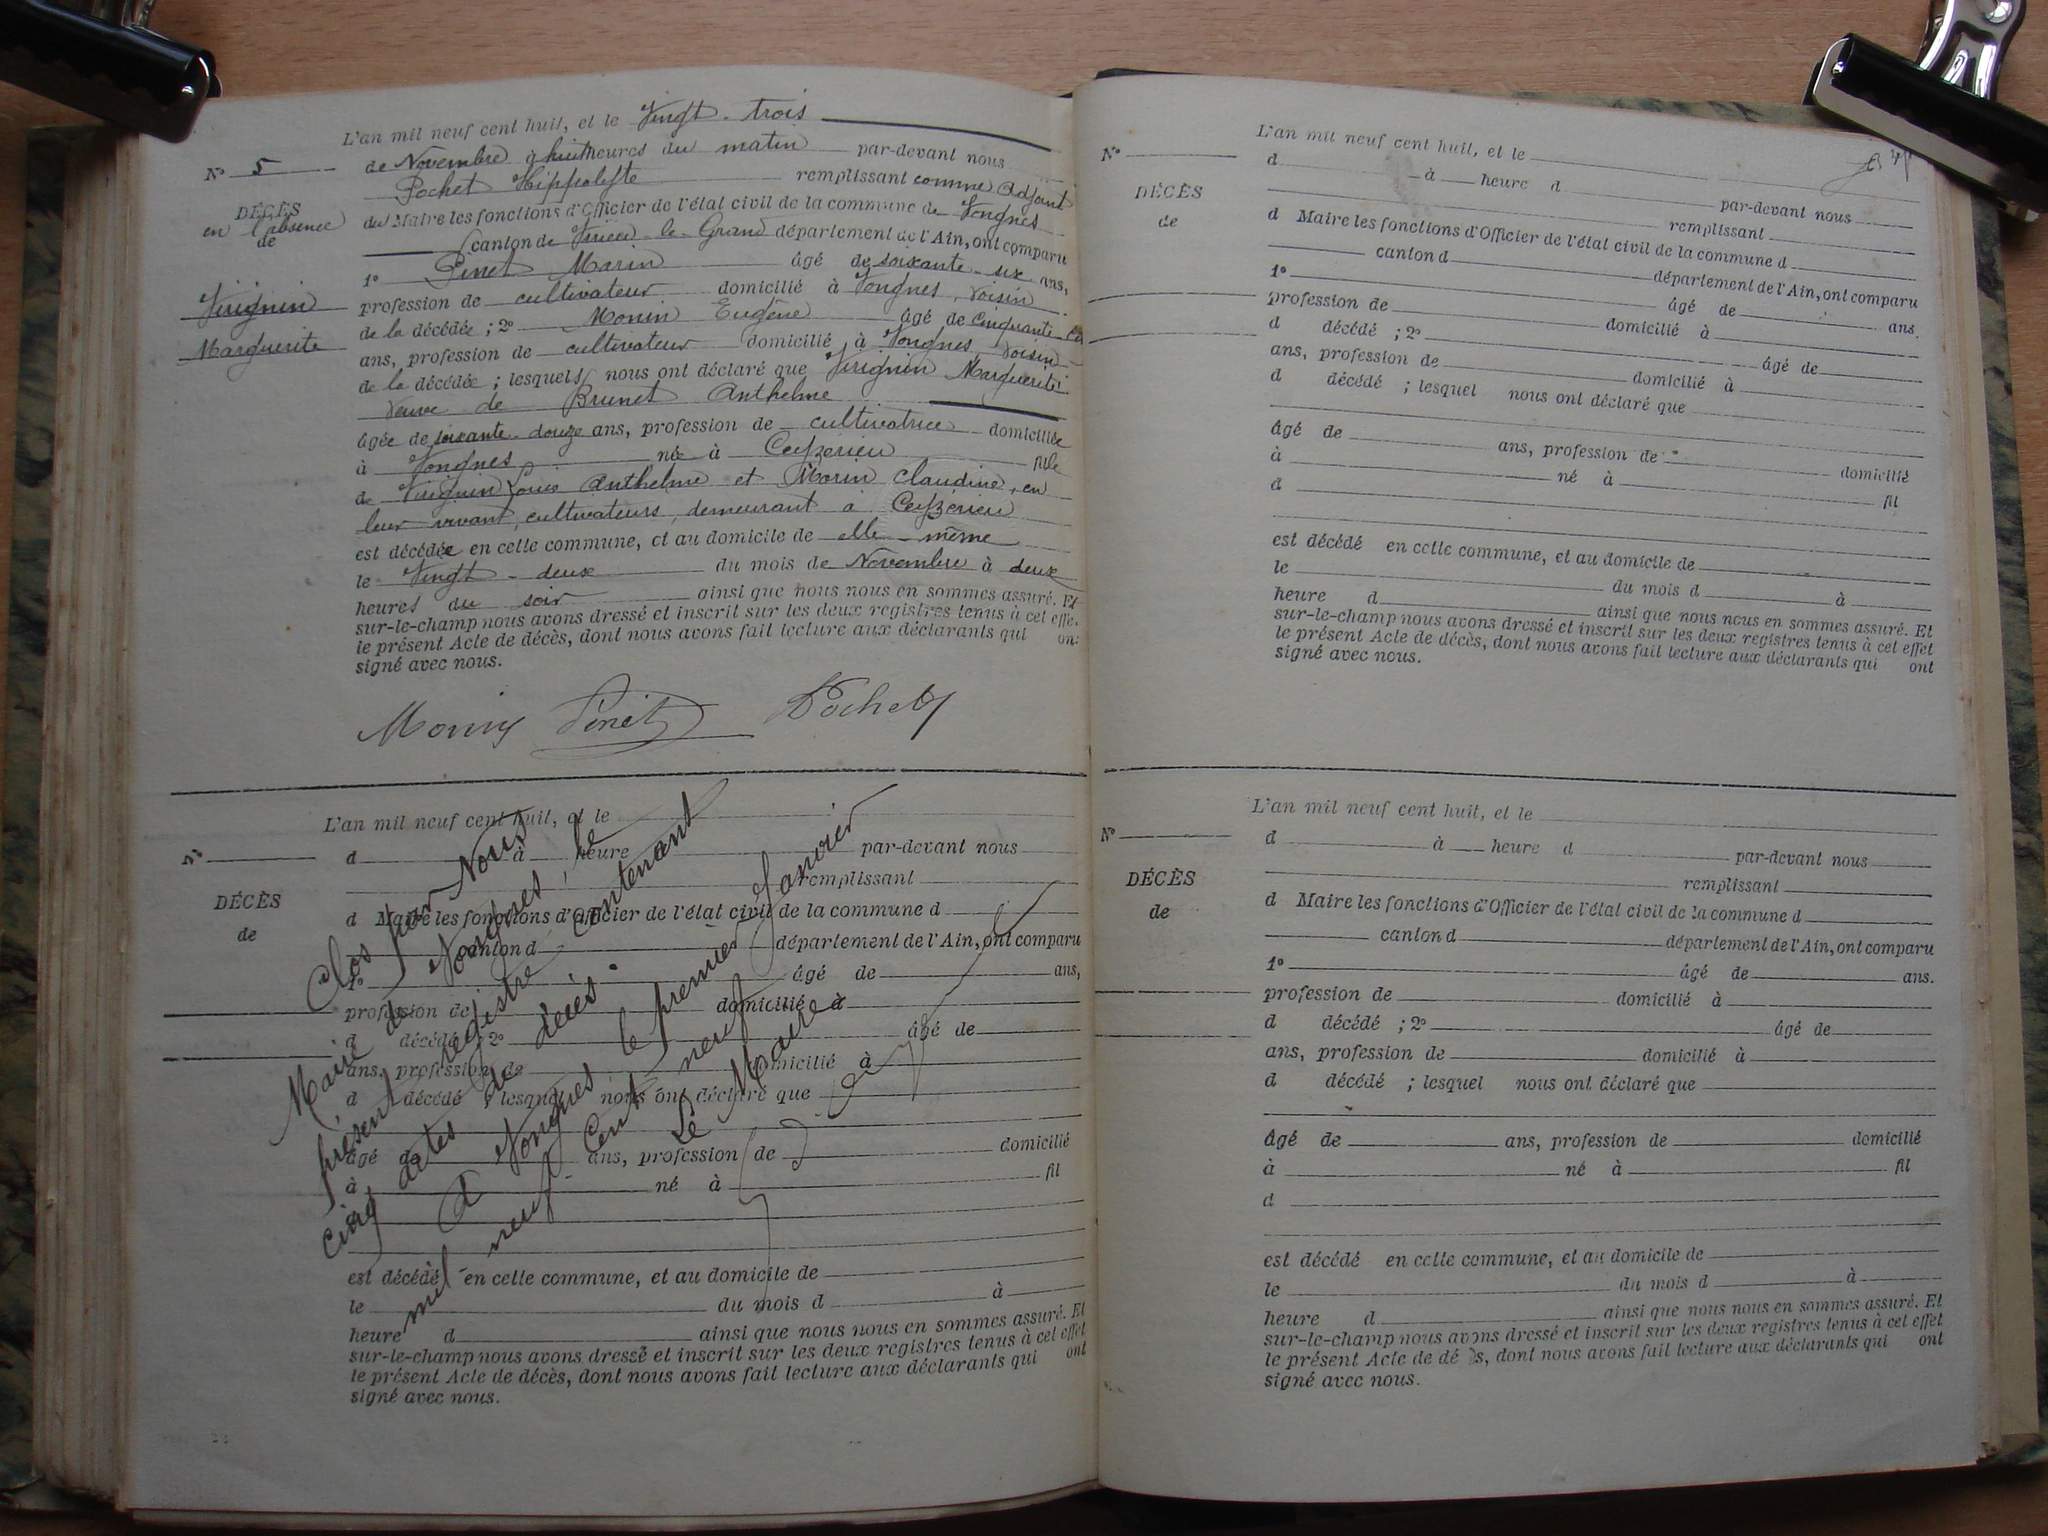 L'an mil neuf cent huit, et le Vingt-trois
N° 5
de Novembre à huit heures du matin par-devant nous
Pochet Hippolyte remplissant comme adjoint
DÉCÈS
en l'absence
de
du Maire les fonctions d'Officier de l'état civil de la commune de Vongnes
canton de Virieu-le-Grand département de l'Ain, ont comparu
1° Pinet Marin âgé de soixante-six ans,
Virignin
Marguerite
profession de cultivateur domicilié à Vongnes, voisin
de la décédée ; 2° Monin Eugène âgé de cinquante
ans, profession de cultivateur domicilié à Vongnes, voisin
de la décédée ; lesquels nous ont déclaré que Virignin Marguerite
veuve de Brunet Anthelme
âgée de soixante-douze ans, profession de cultivatrice domiciliée
à Vongnes née à Ceyzérieu fille
de Virignin Louis Anthelme et Morin Claudine, en
leur vivant, cultivateurs, demeurant à Ceyzérieu
est décédée en cette commune, et au domicile de elle-même
le Vingt-deux du mois de Novembre à deux
heures du soir ainsi que nous nous en sommes assuré. Et
sur-le-champ nous avons dressé et inscrit sur les deux registres tenus à cet effe
le présent Acte de décès, dont nous avons fait lecture aux déclarants qui ont
signé avec nous.
Monin Pinet Pochet
L'an mil neuf cent huit, et le
N°
d à heure par-devant nous
remplissant
DÉCÈS
de
d Maire les fonctions d'Officier de l'état civil de la commune d
canton d département de l'Ain, ont comparu
1° âgé de ans,
profession de domicilié à
d décédé ; 2° âgé de
ans, profession de domicilié à
d décédé ; lesquel nous ont déclaré que
âgé de ans, profession de domicilié
à né à fil
d
est décédé en cette commune, et au domicile de
le du mois d à
heure d ainsi que nous nous en sommes assuré. Et
sur-le-champ nous avons dressé et inscrit sur les deux registres tenus à cet effet
le présent Acte de décès, dont nous avons fait lecture aux déclarants qui ont
signé avec nous.
Clos par Nous
Maire de Vongnes, le
présent registre contenant
cinq actes de décès.
A Vongnes le premier Janvier
mil neuf cent neuf
Le Maire
L'an mil neuf cent huit, et le
N°
d à heure d par-devant nous
remplissant
DÉCÈS
de
d Maire les fonctions d'Officier de l'état civil de la commune d
canton d département de l'Ain, ont comparu
1° âgé de ans.
profession de domicilié à
d décédé ; 2° âgé de
ans, profession de domicilié à
d décédé ; lesquel nous ont déclaré que
âgé de ans, profession de domicilié
à né à fil
d
est décédé en cette commune, et au domicile de
le du mois d à
heure d ainsi que nous nous en sommes assuré. Et
sur-le-champ nous avons dressé et inscrit sur les deux registres tenus à cet effet
le présent Acte de décès, dont nous avons fait lecture aux déclarants qui ont
signé avec nous.
L'an mil neuf cent huit, et le
N°
d à heure d par-devant nous
remplissant
DÉCÈS
de
d Maire les fonctions d'Officier de l'état civil de la commune d
canton d département de l'Ain, ont comparu
1° âgé de ans.
profession de domicilié à
d décédé ; 2° âgé de
ans, profession de domicilié à
d décédé ; lesquel nous ont déclaré que
âgé de ans, profession de domicilié
à né à fil
d
est décédé en cette commune, et au domicile de
le du mois d à
heure d ainsi que nous nous en sommes assuré. Et
sur-le-champ nous avons dressé et inscrit sur les deux registres tenus à cet effet
le présent Acte de dé s, dont nous avons fait lecture aux déclarants qui ont
signé avec nous.